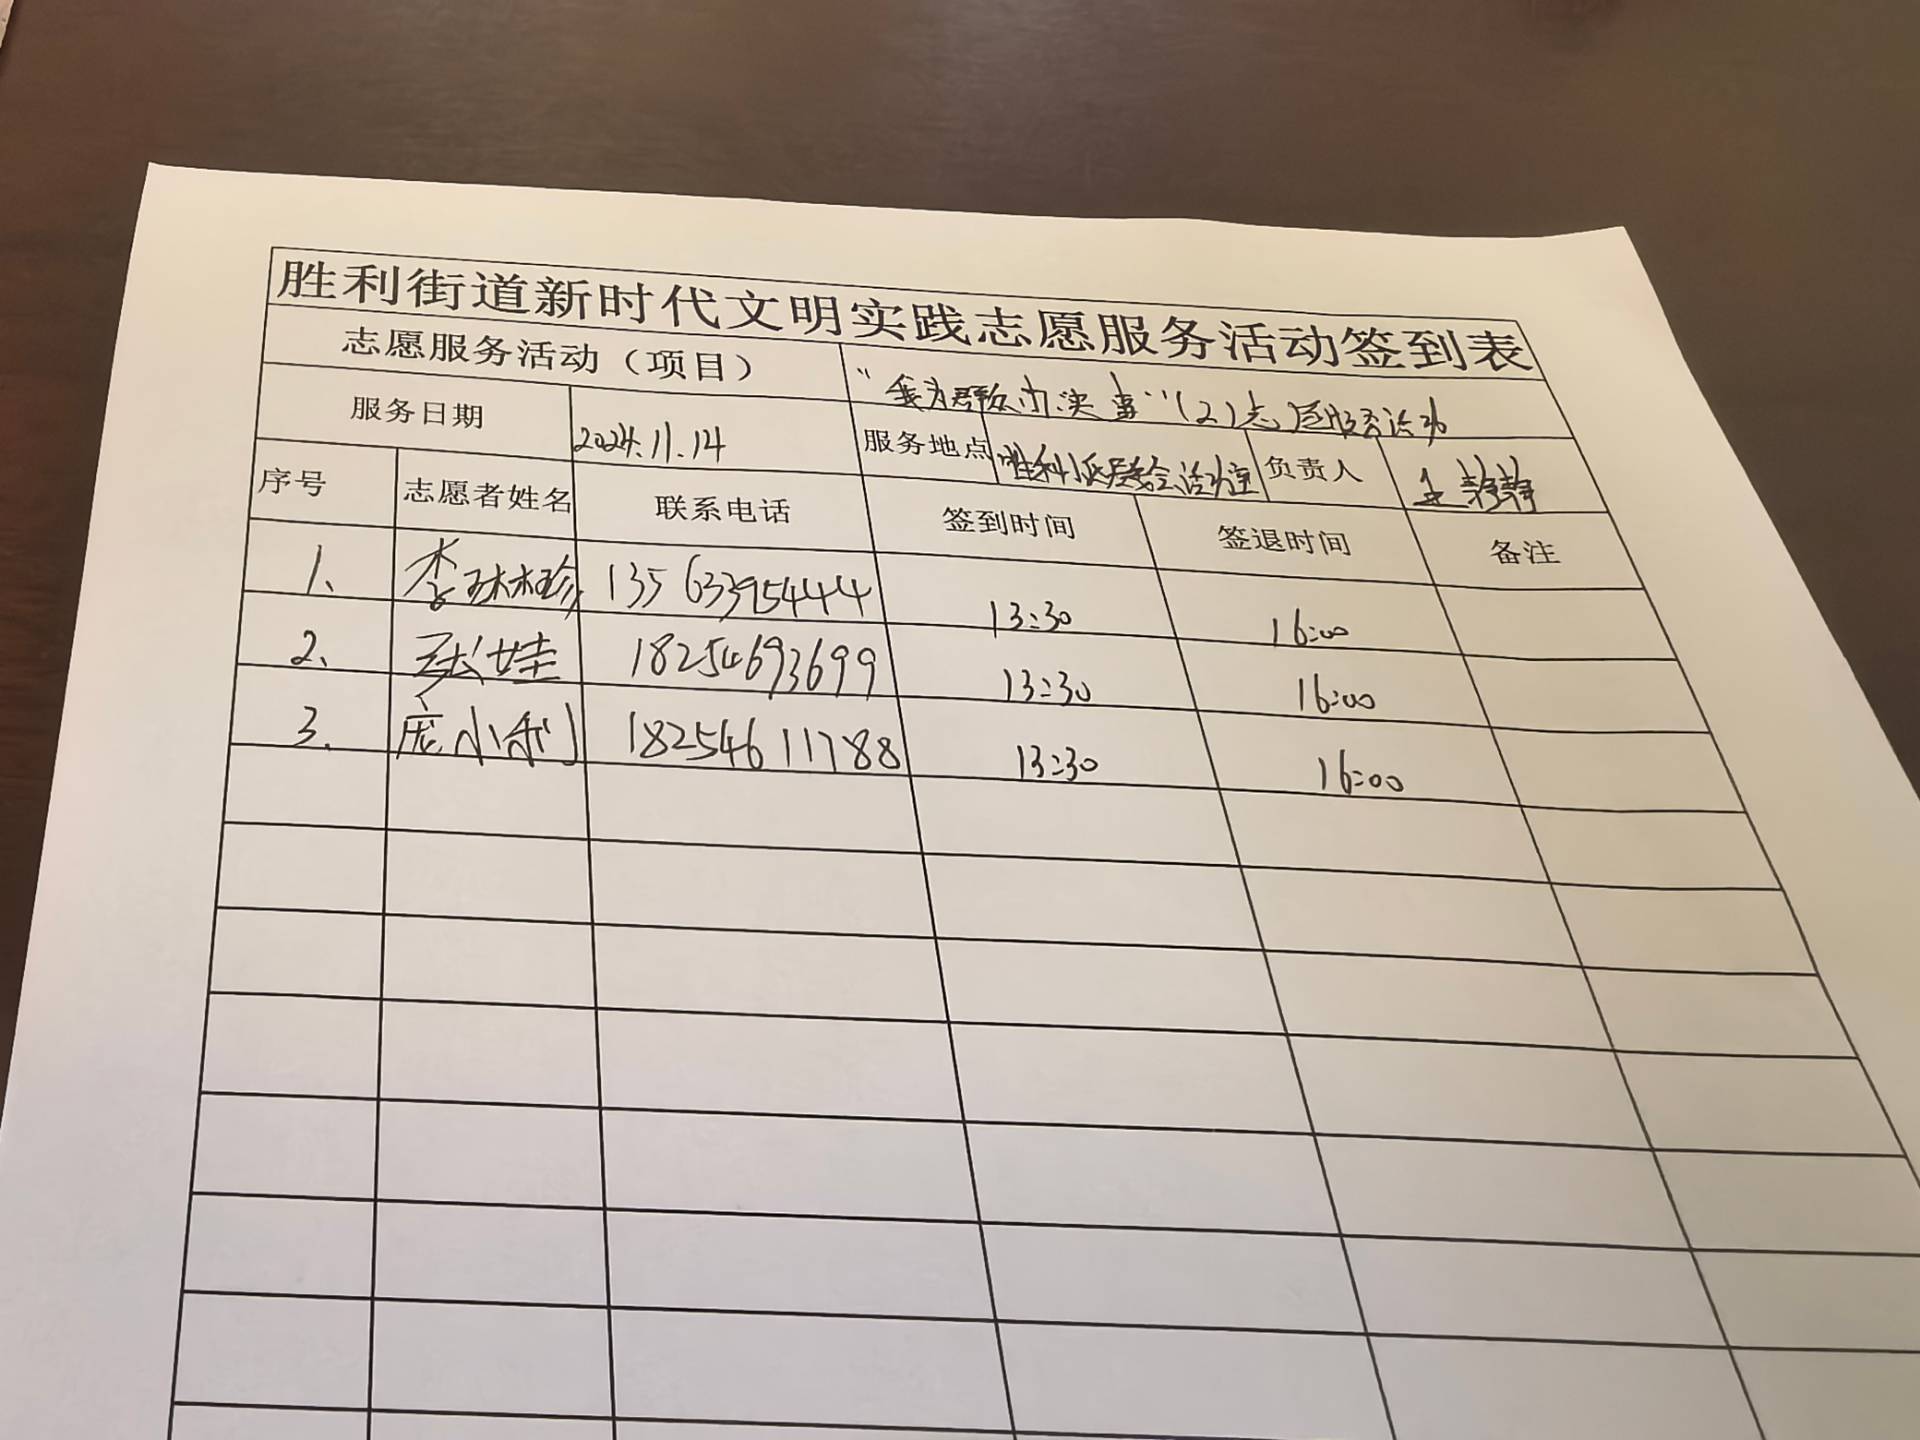 胜利街道新时代文明实践志愿服务活动签到表
志愿服务活动（项目） “我为群众办实事”（2）志愿服务活动
服务日期 2024.11.14 服务地点 胜利小区居委会活动室 负责人 孟静静
序号 志愿者姓名 联系电话 签到时间 签退时间 备注
1、 李琳珍 13563395444 13:30 16:00
2、 张娃 18254693699 13:30 16:00
3、 庞小利 18254611788 13:30 16:00